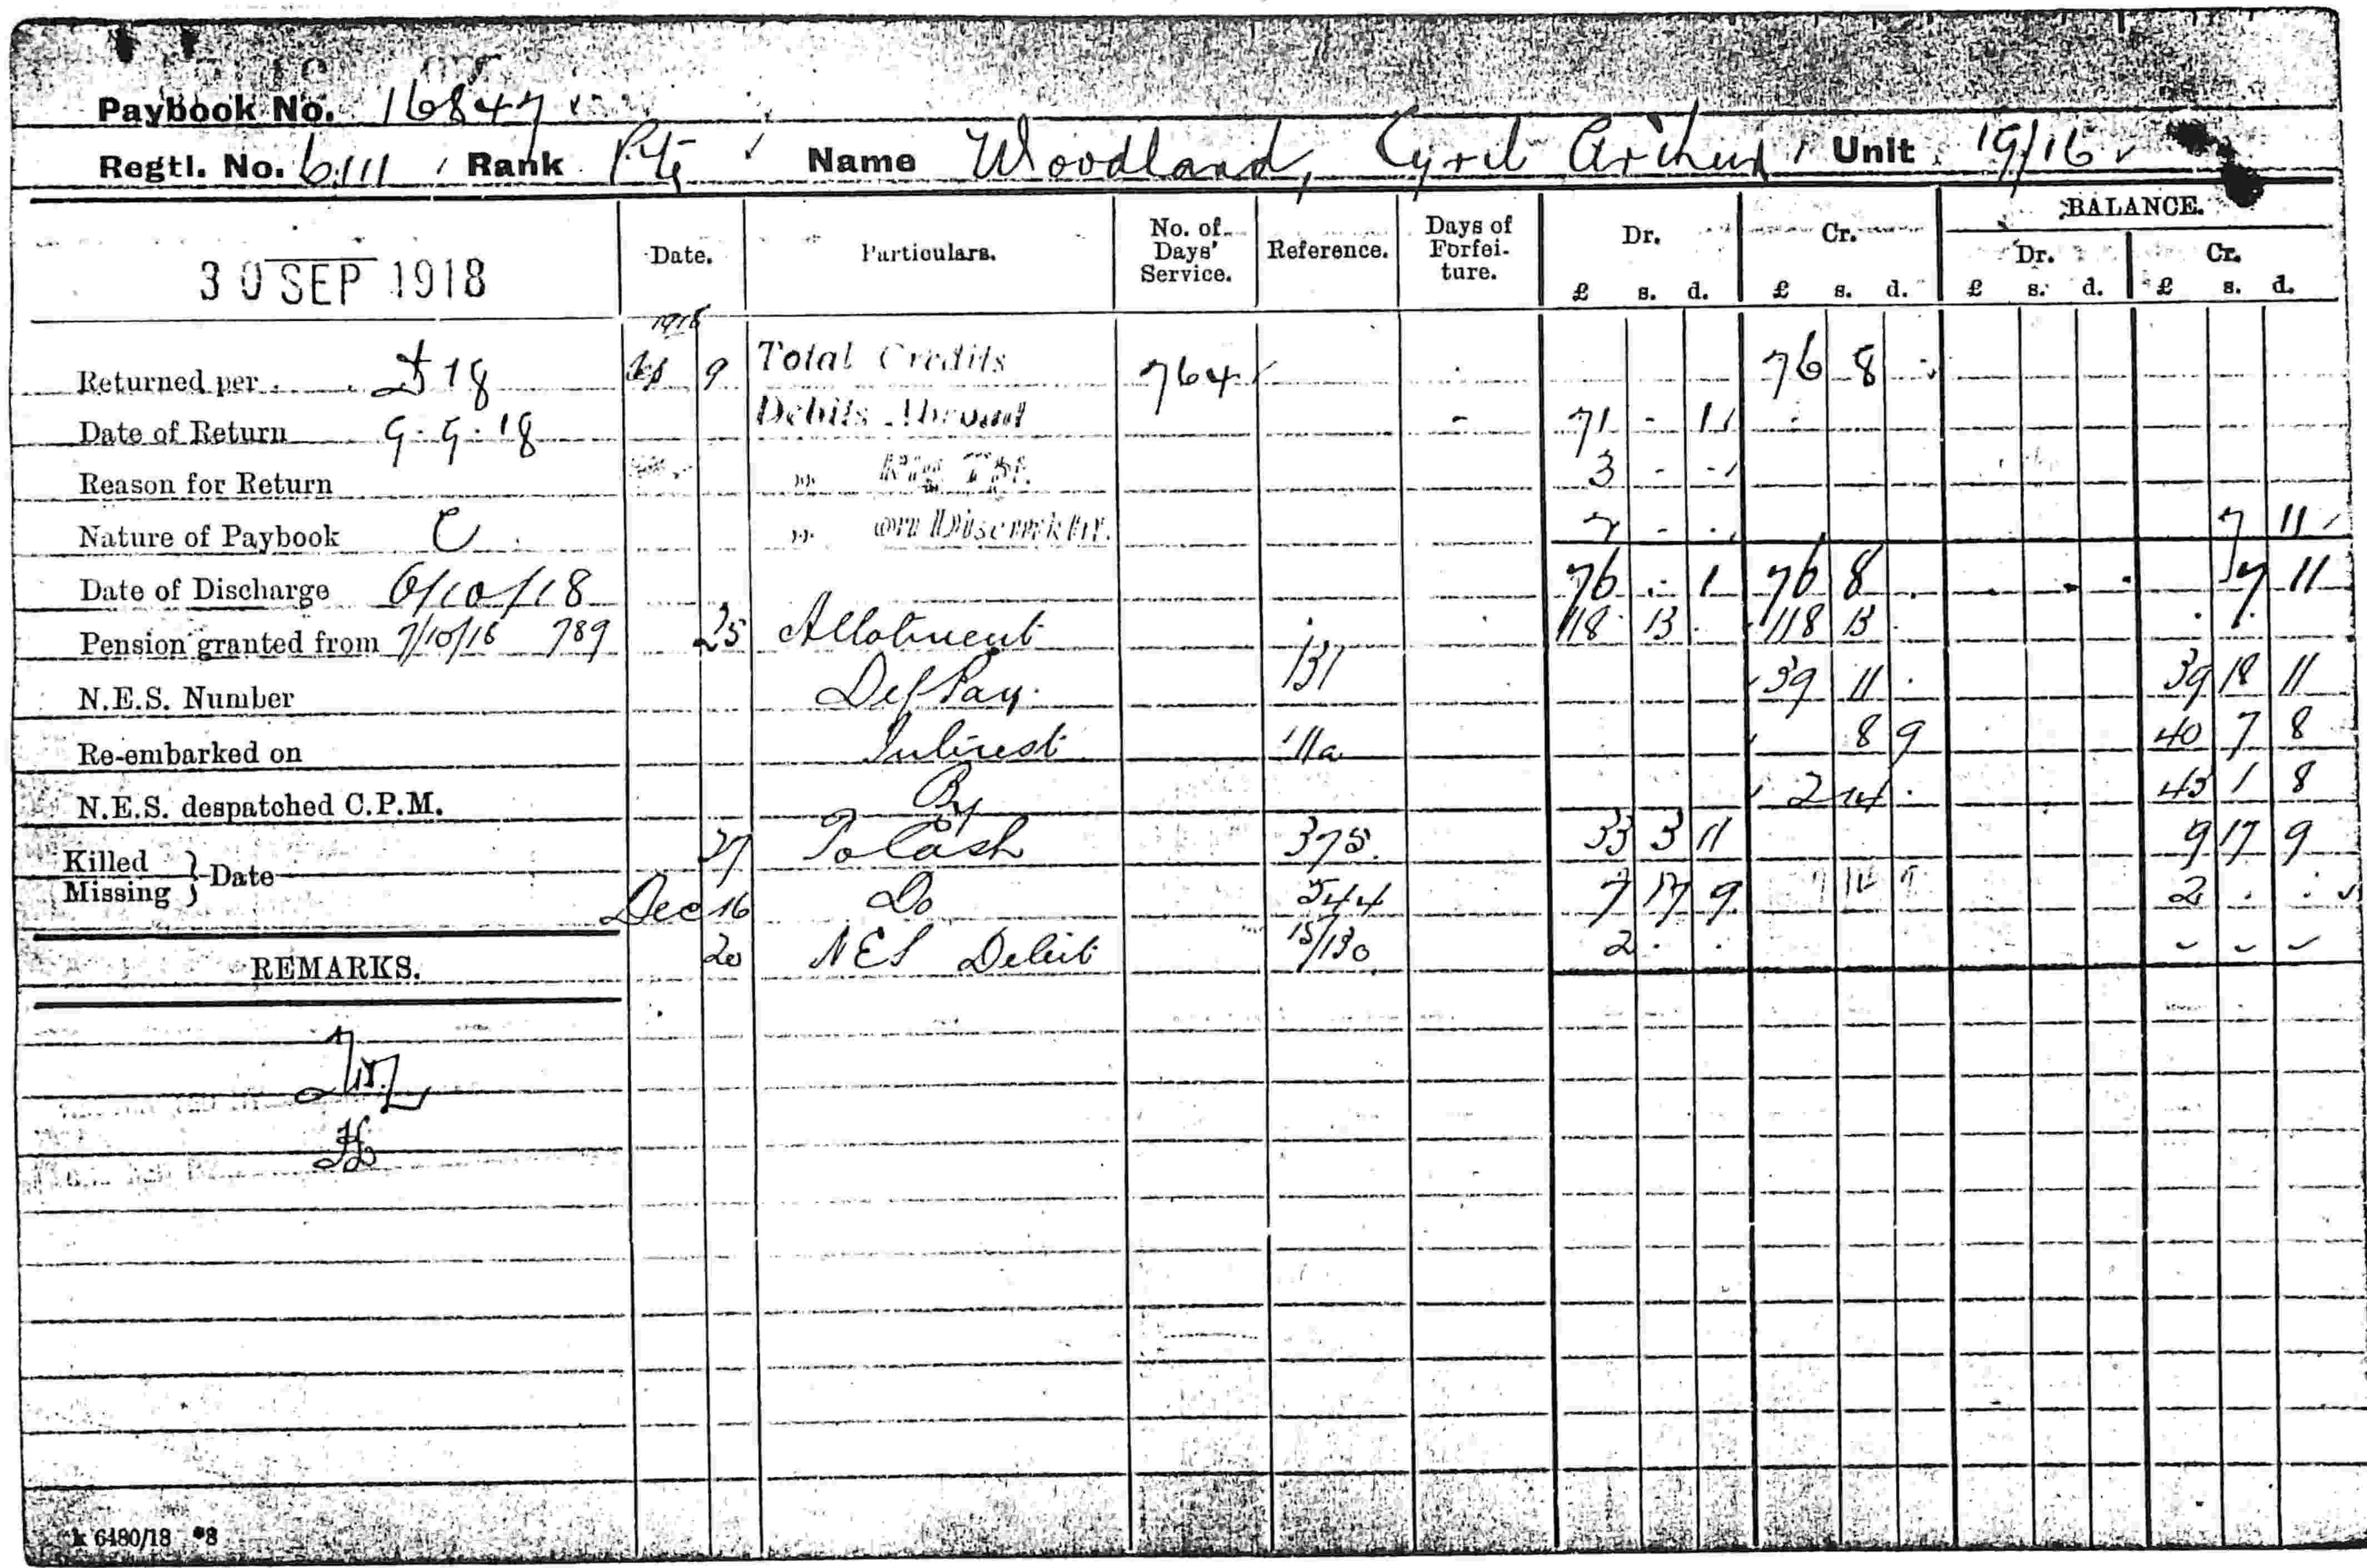 Paybook No. 16847
Regtl. No. 6111 Rank Pte Name Woodland, Cyril Arthur Unit 19/16
30 SEP 1918
Date. Particulars. No. of Days' Service. Reference. Days of Forfei-ture. Dr. Cr. BALANCE.
Dr. Cr.
£ s. d. £ s. d. £ s. d. £ s. d.
1918
Returned per D18 Sep 9 Total Credits 764 76 8 -
Date of Return 9.9.18 Debits Abroad - 71 - 1
Reason for Return " 3 - -
Nature of Paybook C " on Disembktn. 2 - - 7 11
Date of Discharge 6/10/18 76 - 1 76 8 - 7 11
Pension granted from 7/10/18 789 25 Allotment 118 13 - 118 13 -
N.E.S. Number Def Pay. 131 39 11 - 39 18 11
Re-embarked on Interest 11a 8 9 40 7 8
N.E.S. despatched C.P.M. By 2 14 - 43 1 8
Killed } Date 27 To Cash 375 33 3 11 9 17 9
Missing } Dec 16 Do 544 7 17 9 2 - -
20 NES Debit 15/130 2 - - - - -
REMARKS.
6480/18